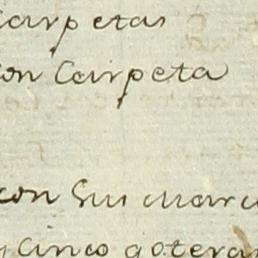 Carpetas
con Carpeta
con sus marc
y cinco gotera